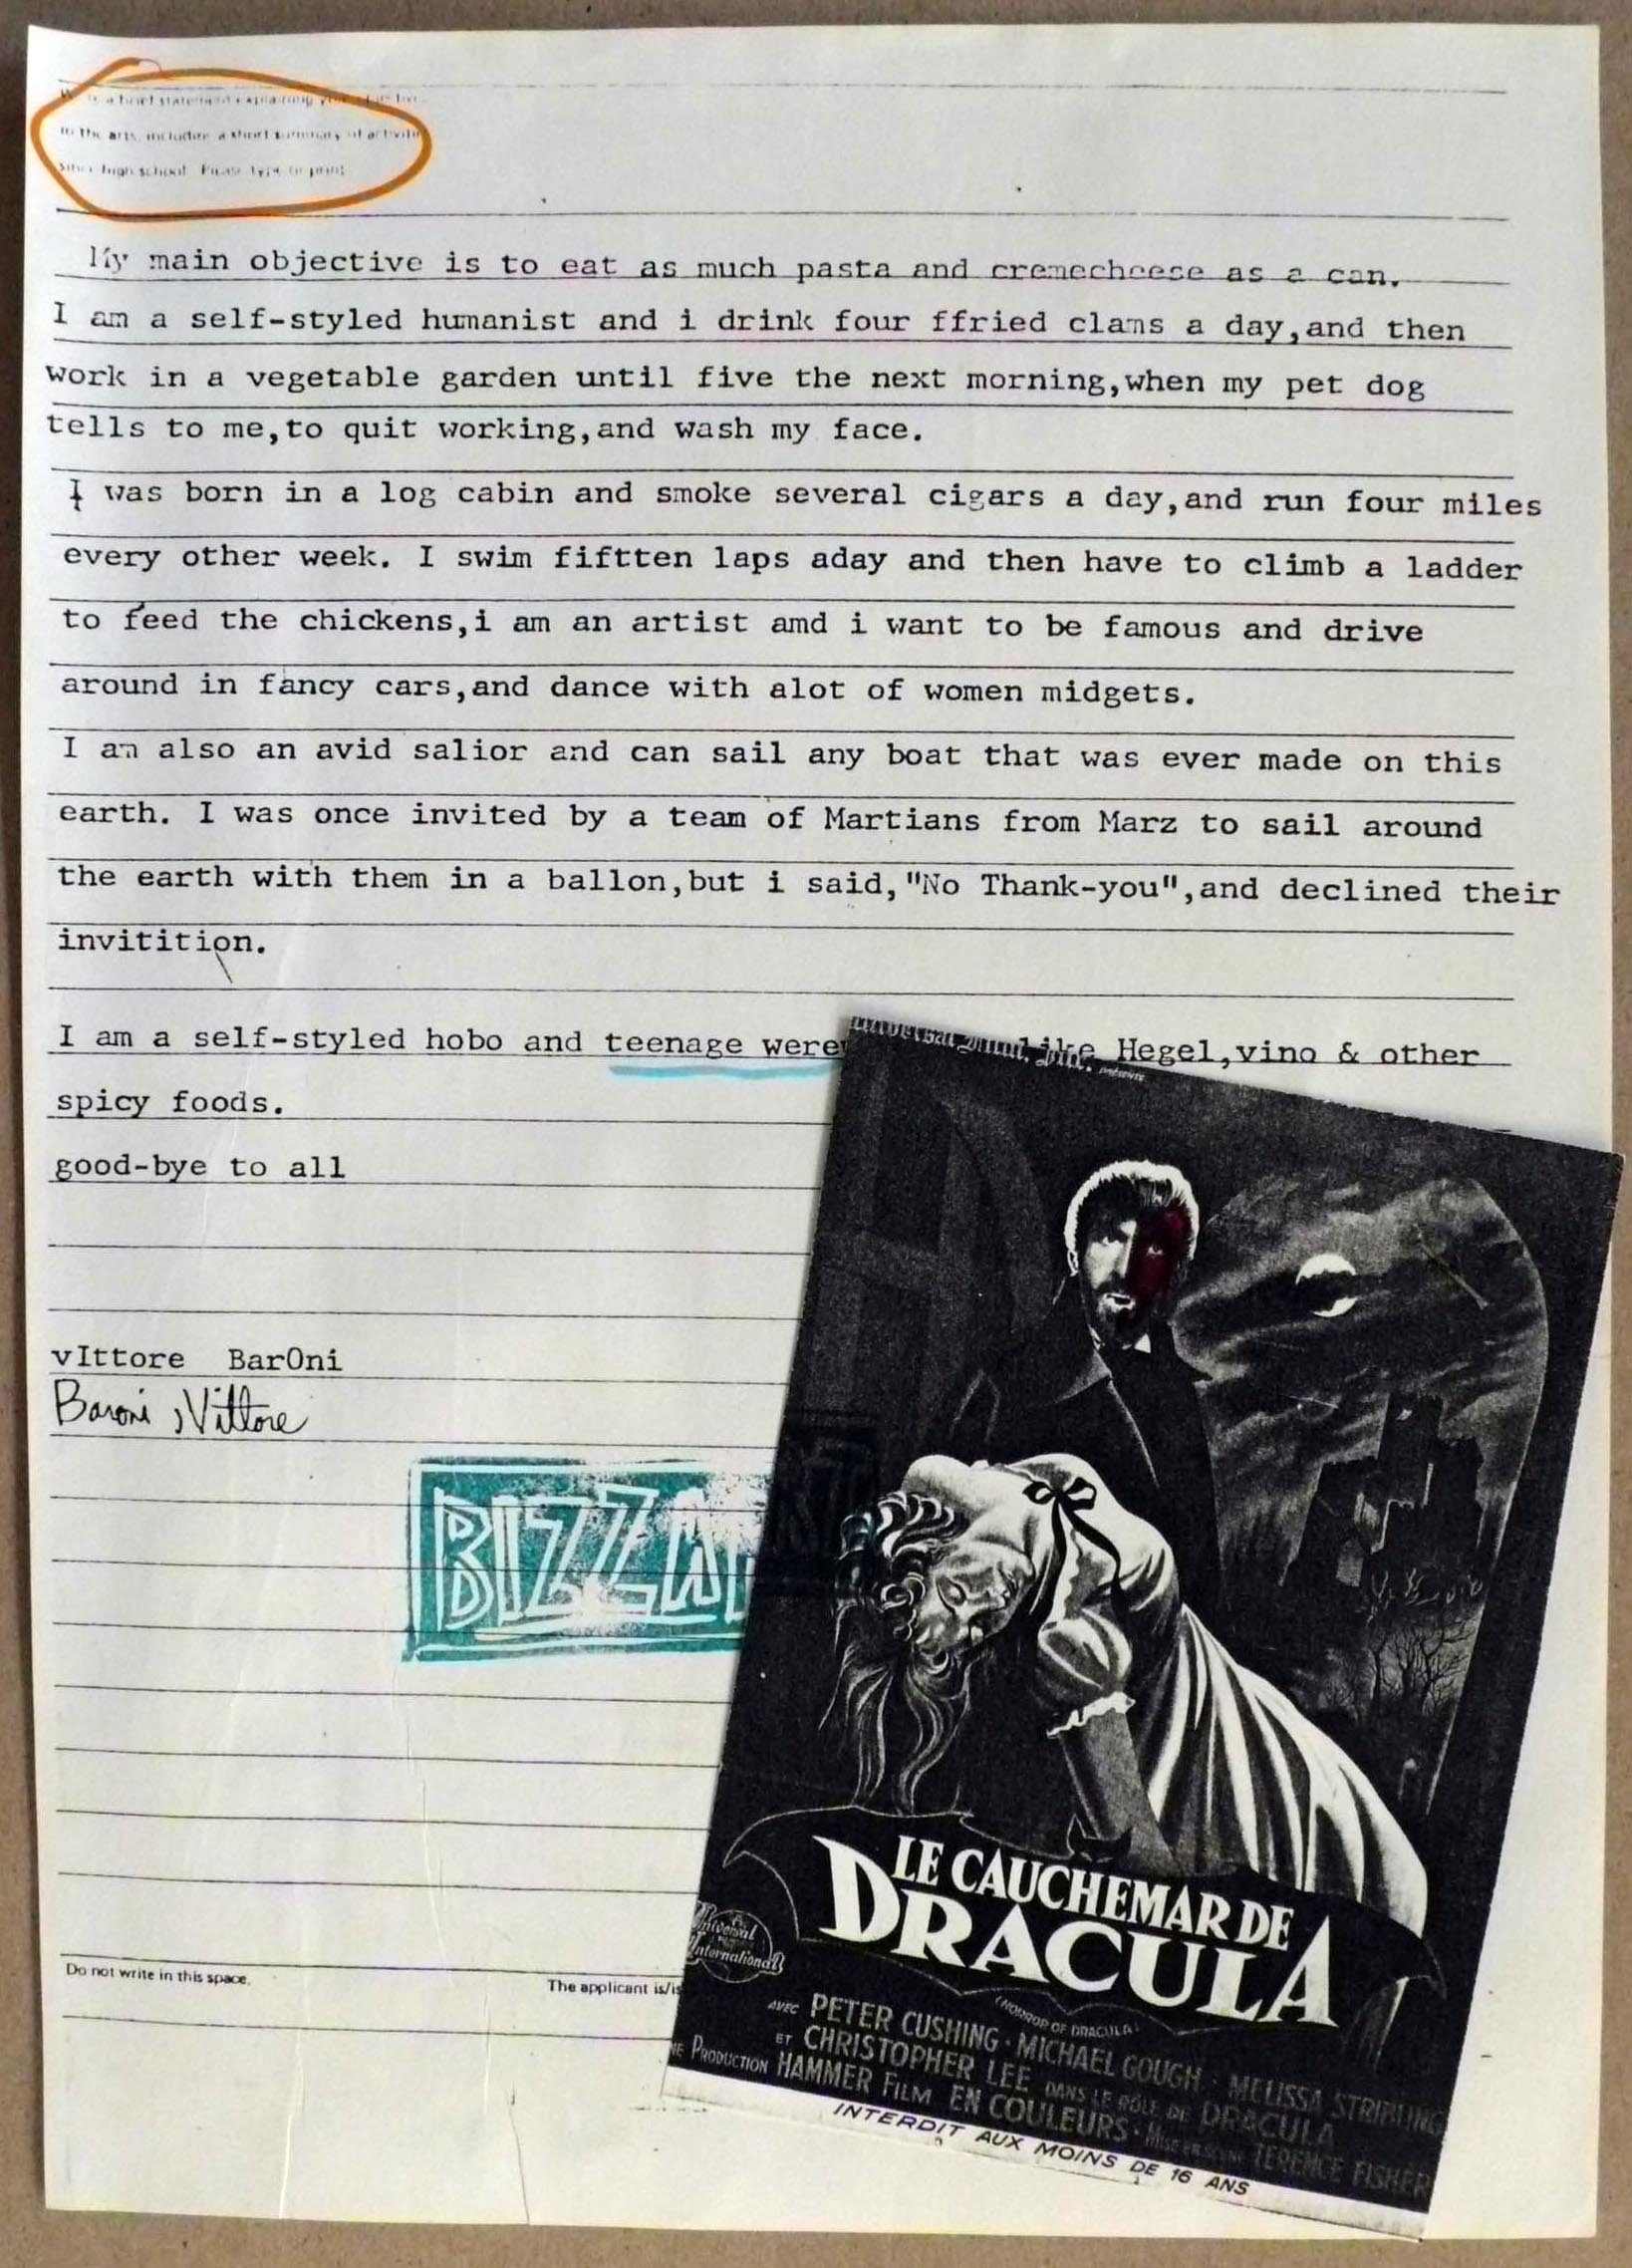 a brief statement explaining
in the arts, include a short summary of activities
high school. Please type or print
My main objective is to eat as much pasta and cremecheese as a can.
I am a self-styled humanist and i drink four ffried clams a day,and then
work in a vegetable garden until five the next morning,when my pet dog
tells to me,to quit working,and wash my face.
I was born in a log cabin and smoke several cigars a day,and run four miles
every other week. I swim fiftten laps aday and then have to climb a ladder
to feed the chickens,i am an artist amd i want to be famous and drive
around in fancy cars,and dance with alot of women midgets.
I am also an avid salior and can sail any boat that was ever made on this
earth. I was once invited by a team of Martians from Marz to sail around
the earth with them in a ballon,but i said,"No Thank-you",and declined their
invitition.
I am a self-styled hobo and teenage were like Hegel,vino & other
spicy foods.
good-bye to all
vIttore BarOni
Baroni, Vittore
BIZZA
Do not write in this space.
The applicant is/is
présente
LE CAUCHEMAR DE
DRACULA
(HORROR OF DRACULA)
Universal
International
AVEC PETER CUSHING · MICHAEL GOUGH · MELISSA STRIBLING
ET CHRISTOPHER LEE DANS LE RÔLE DE DRACULA
NE PRODUCTION HAMMER FILM EN COULEURS · MISE EN SCENE TERENCE FISHER
INTERDIT AUX MOINS DE 16 ANS